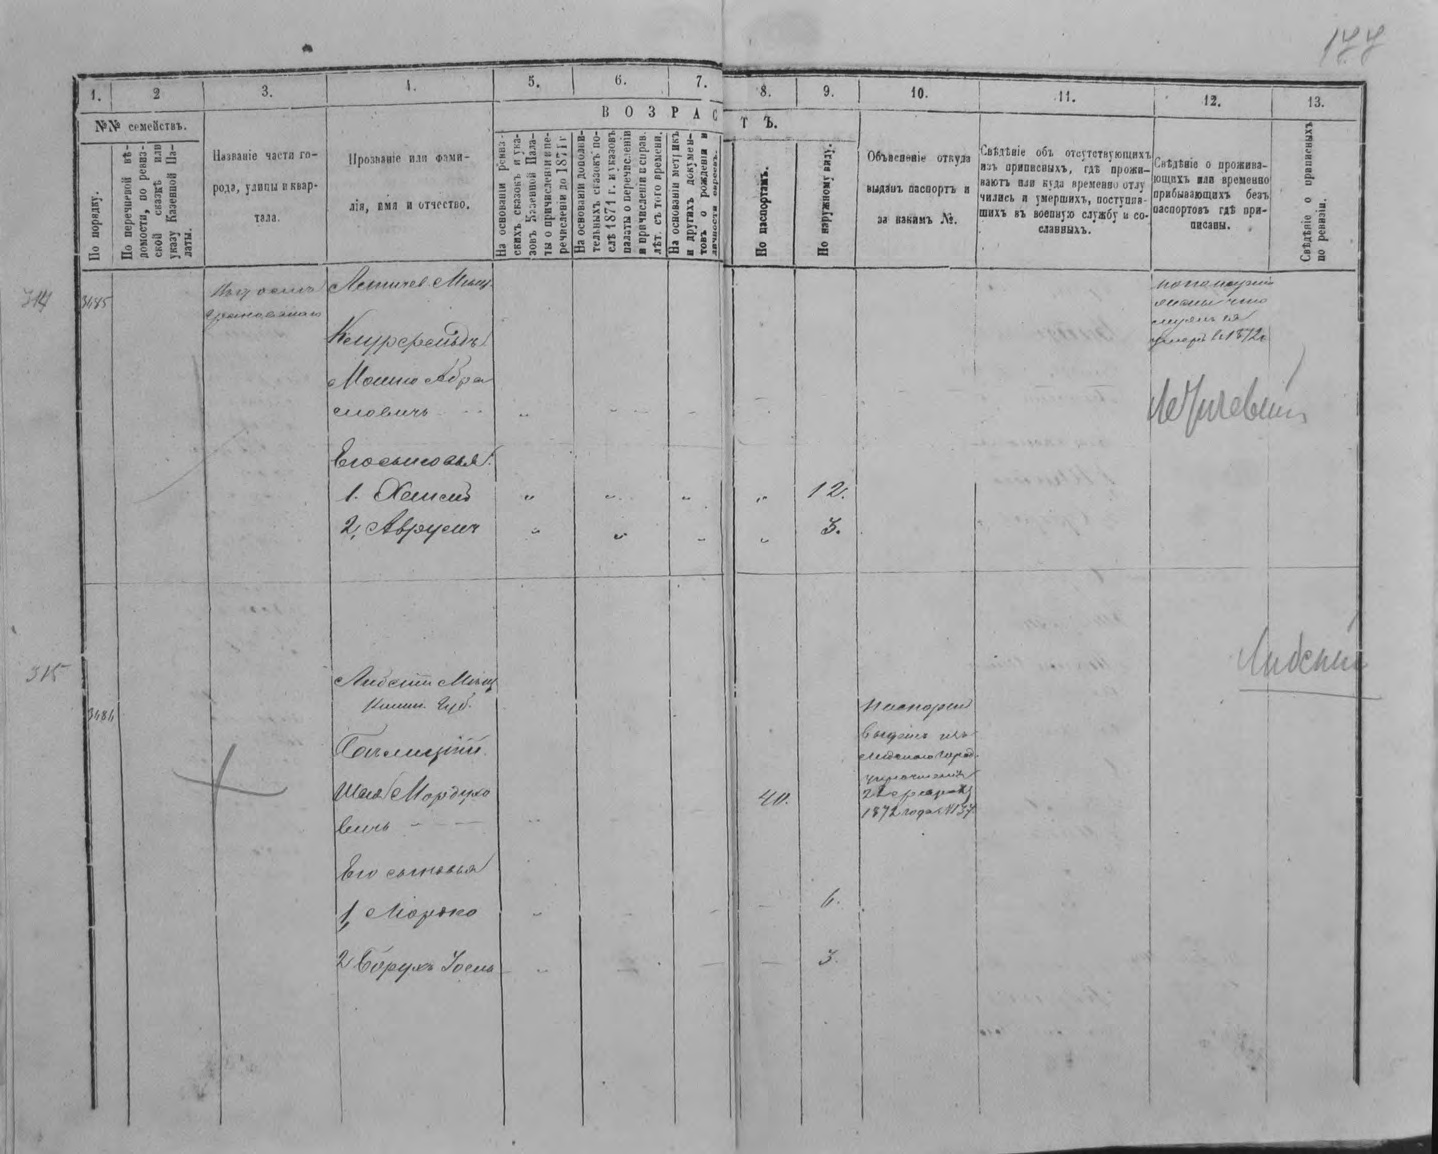 177
1.
2
3.
4.
5.
6.
7.
8.
9.
10.
11.
12.
13.
№№ семействъ.
ВОЗРАСТЪ.
По порядку.
По перечневой вѣ-
домости, по ревиз-
ской сказкѣ или
указу Казенной Па-
латы.
Названіе части го-
рода, улицы и квар-
тала.
Прозваніе или фами-
лія, имя и отчество.
На основаніи ревиз-
скихъ сказокъ и ука-
зовъ Казенной Пала-
ты о причисленіи и пе-
речисленіи до 1871 г.
На основаніи дополни-
тельныхъ сказокъ по-
слѣ 1871 г. и указовъ
палаты о перечисленіи
и причисленіи и справ.
лѣт. съ того времени.
На основаніи метрикъ
и другихъ докумен-
товъ о рожденіи и
личности евреевъ.
По паспортамъ.
По наружному виду.
Объясненіе откуда
выданъ паспортъ и
за какимъ №.
Свѣдѣніе объ отсутствующихъ
изъ приписныхъ, гдѣ прожи-
ваютъ или куда временно отлу
чились и умершихъ, поступив-
шихъ въ военную службу и со-
сланныхъ.
Свѣдѣніе о прожива-
ющихъ или временно
прибывающихъ безъ
паспортовъ гдѣ при-
писаны.
Свѣдѣніе о приписныхъ
по ревизіи.
314
3485
Летичев Мѣщ.
Мошко Абра
мовичъ
умеръ 1872
Летичевскій
Его сыновья
1. Хаимъ
12.
2, Аврумъ
3.
315
Лидскій
3486
Лидскій Мѣщ.
Губ.
Шая Мордухо
вичъ
40.
Паспортъ
выданъ изъ
Лидскаго Город.
1872 года №37.
Его сыновья
1, Мортко
6.
2 Борухъ Іосель
3.